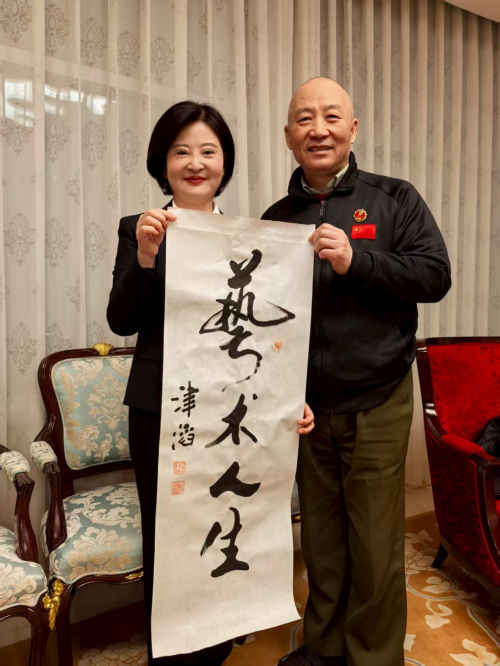 藝术人生
津滔